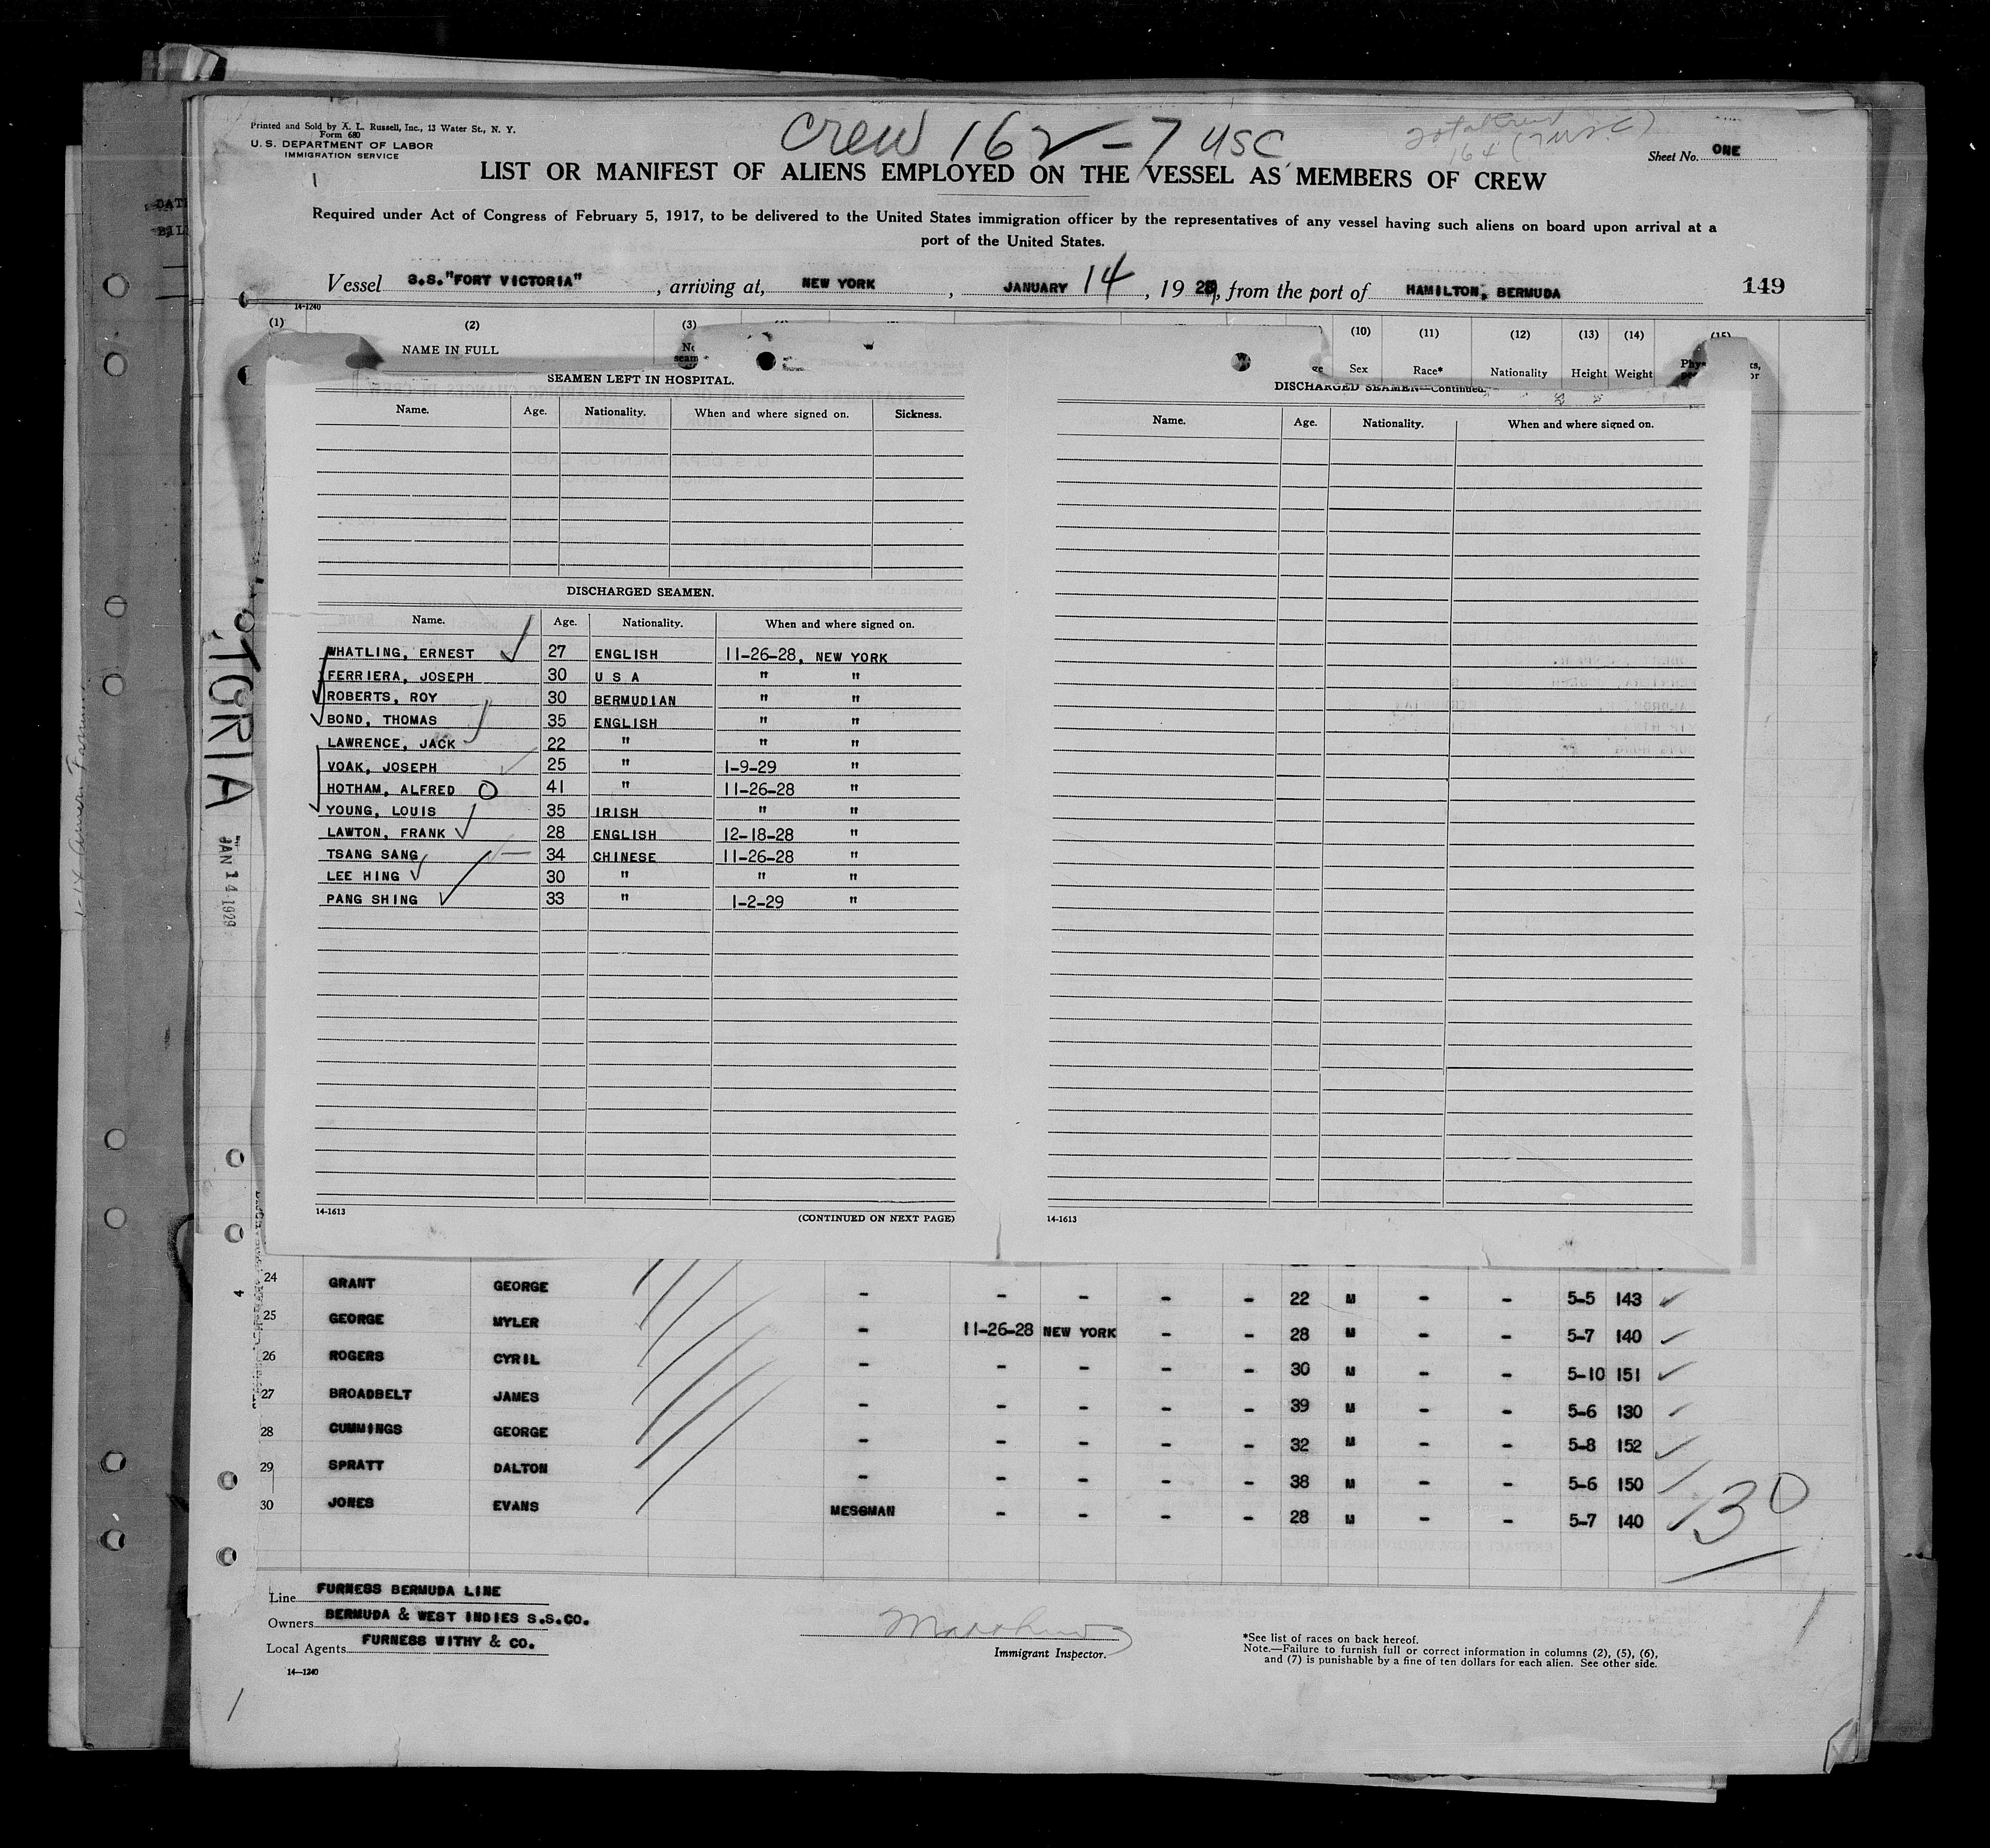 Crew 162 - 7 USC
Printed and Sold by A. L. Russell, Inc., 13 Water St., N. Y.
Form 680
U. S. DEPARTMENT OF LABOR
IMMIGRATION SERVICE
1
164 (7 USC)
Sheet No. ONE
LIST OR MANIFEST OF ALIENS EMPLOYED ON THE VESSEL AS MEMBERS OF CREW
Required under Act of Congress of February 5, 1917, to be delivered to the United States immigration officer by the representatives of any vessel having such aliens on board upon arrival at a
port of the United States.
Vessel S.S."FORT VICTORIA", arriving at, NEW YORK, JANUARY 14, 1929, from the port of HAMILTON, BERMUDA
149
14-1240
(1) (2) (3) (10) (11) (12) (13) (14) (15)
NAME IN FULL Sex Race* Nationality Height Weight
SEAMEN LEFT IN HOSPITAL.
Name. Age. Nationality. When and where signed on. Sickness.
DISCHARGED SEAMEN.
Name. Age. Nationality. When and where signed on.
WHATLING, ERNEST 27 ENGLISH 11-26-28, NEW YORK
FERRIERA, JOSEPH 30 U S A " "
ROBERTS, ROY 30 BERMUDIAN " "
BOND, THOMAS 35 ENGLISH " "
LAWRENCE, JACK 22 " " "
VOAK, JOSEPH 25 " 1-9-29 "
HOTHAM, ALFRED O 41 " 11-26-28 "
YOUNG, LOUIS 35 IRISH " "
LAWTON, FRANK 28 ENGLISH 12-18-28 "
TSANG SANG 34 CHINESE 11-26-28 "
LEE HING 30 " " "
PANG SHING 33 " 1-2-29 "
14-1613
(CONTINUED ON NEXT PAGE)
DISCHARGED SEAMEN—Continued.
Name. Age. Nationality. When and where signed on.
14-1613
TORIA
JAN 14 1929
4
24 GRANT GEORGE - - - - - 22 M - - 5-5 143
25 GEORGE MYLER - 11-26-28 NEW YORK - - 28 M - - 5-7 140
26 ROGERS CYRIL - - - - - 30 M - - 5-10 151
27 BROADBELT JAMES - - - - - 39 M - - 5-6 130
28 CUMMINGS GEORGE - - - - - 32 M - - 5-8 152
29 SPRATT DALTON - - - - - 38 M - - 5-6 150
30 JONES EVANS MESSMAN - - - - 28 M - - 5-7 140
30
Line FURNESS BERMUDA LINE
Owners BERMUDA & WEST INDIES S.S.CO.
Local Agents FURNESS WITHY & CO.
14—1240
Immigrant Inspector.
*See list of races on back hereof.
Note.—Failure to furnish full or correct information in columns (2), (5), (6),
and (7) is punishable by a fine of ten dollars for each alien. See other side.